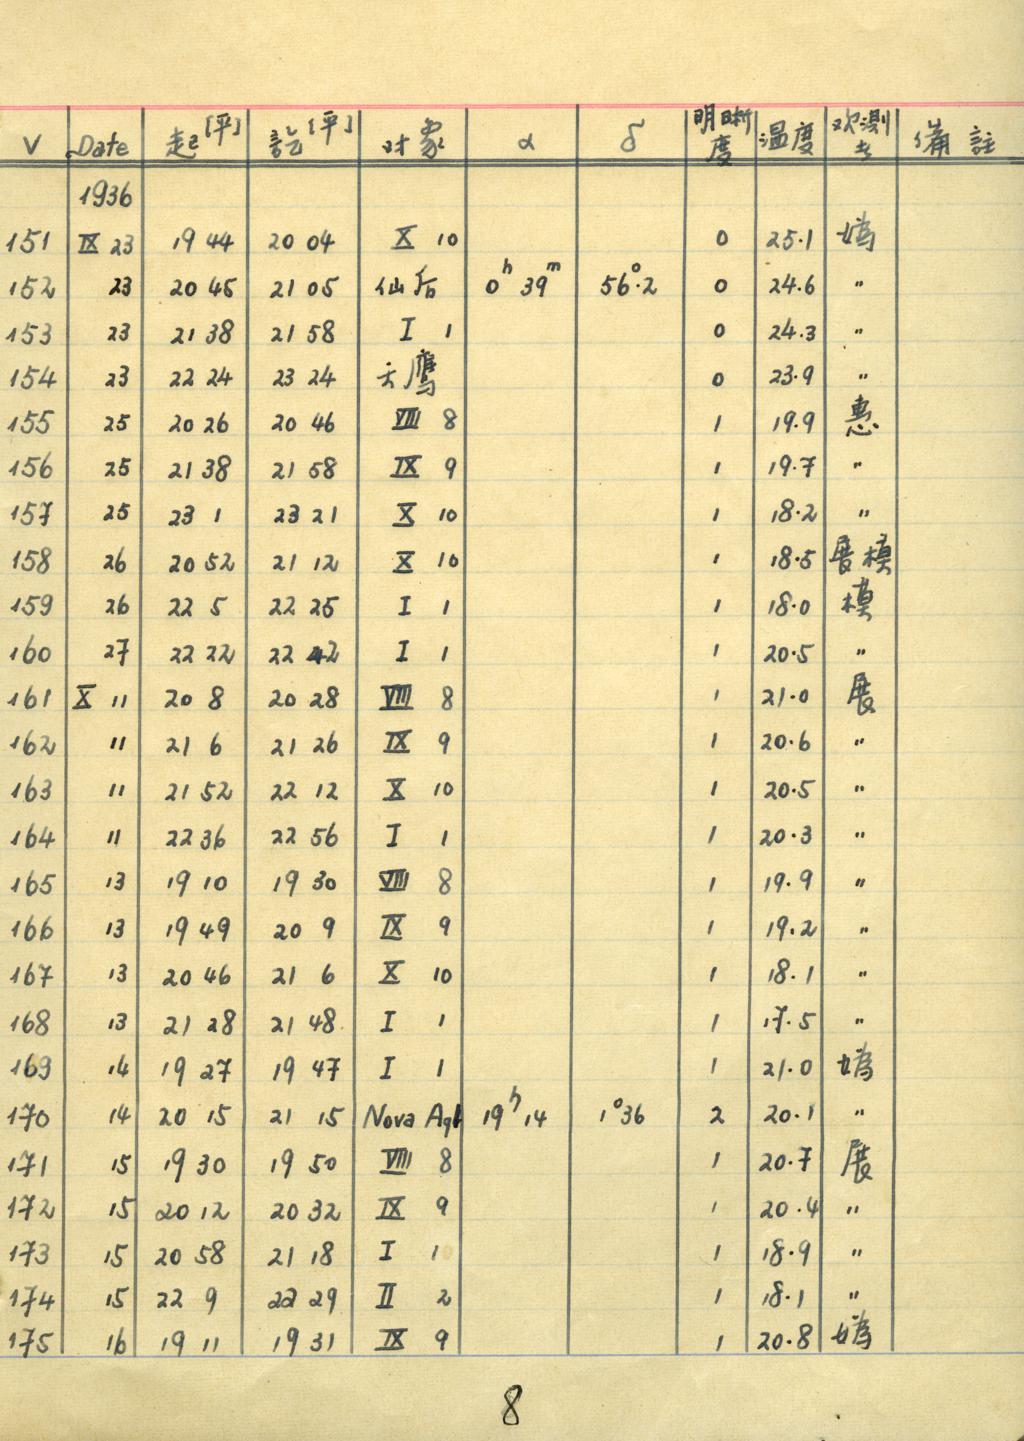 V Date 起[平] 訖[平] 对象 α δ 明晰度 温度 观測者 備註
1936
151 IX 23 19 44 20 04 X 10 0 25.1 嬀
152 23 20 45 21 05 仙后 0h 39m 56°.2 0 24.6 〃
153 23 21 38 21 58 I 1 0 24.3 〃
154 23 22 24 23 24 天鷹 0 23.9 〃
155 25 20 26 20 46 VIII 8 1 19.9 惠
156 25 21 38 21 58 IX 9 1 19.7 〃
157 25 23 1 23 21 X 10 1 18.2 〃
158 26 20 52 21 12 X 10 1 18.5 展模
159 26 22 5 22 25 I 1 1 18.0 模
160 27 22 22 22 42 I 1 1 20.5 〃
161 X 11 20 8 20 28 VIII 8 1 21.0 展
162 11 21 6 21 26 IX 9 1 20.6 〃
163 11 21 52 22 12 X 10 1 20.5 〃
164 11 22 36 22 56 I 1 1 20.3 〃
165 13 19 10 19 30 VIII 8 1 19.9 〃
166 13 19 49 20 9 IX 9 1 19.2 〃
167 13 20 46 21 6 X 10 1 18.1 〃
168 13 21 28 21 48 I 1 1 17.5 〃
169 14 19 27 19 47 I 1 1 21.0 嬀
170 14 20 15 21 15 Nova Aql 19h 14 1°36 2 20.1 〃
171 15 19 30 19 50 VIII 8 1 20.7 展
172 15 20 12 20 32 IX 9 1 20.4 〃
173 15 20 58 21 18 I 1 1 18.9 〃
174 15 22 9 22 29 II 2 1 18.1 〃
175 16 19 11 19 31 IX 9 1 20.8 嬀
8